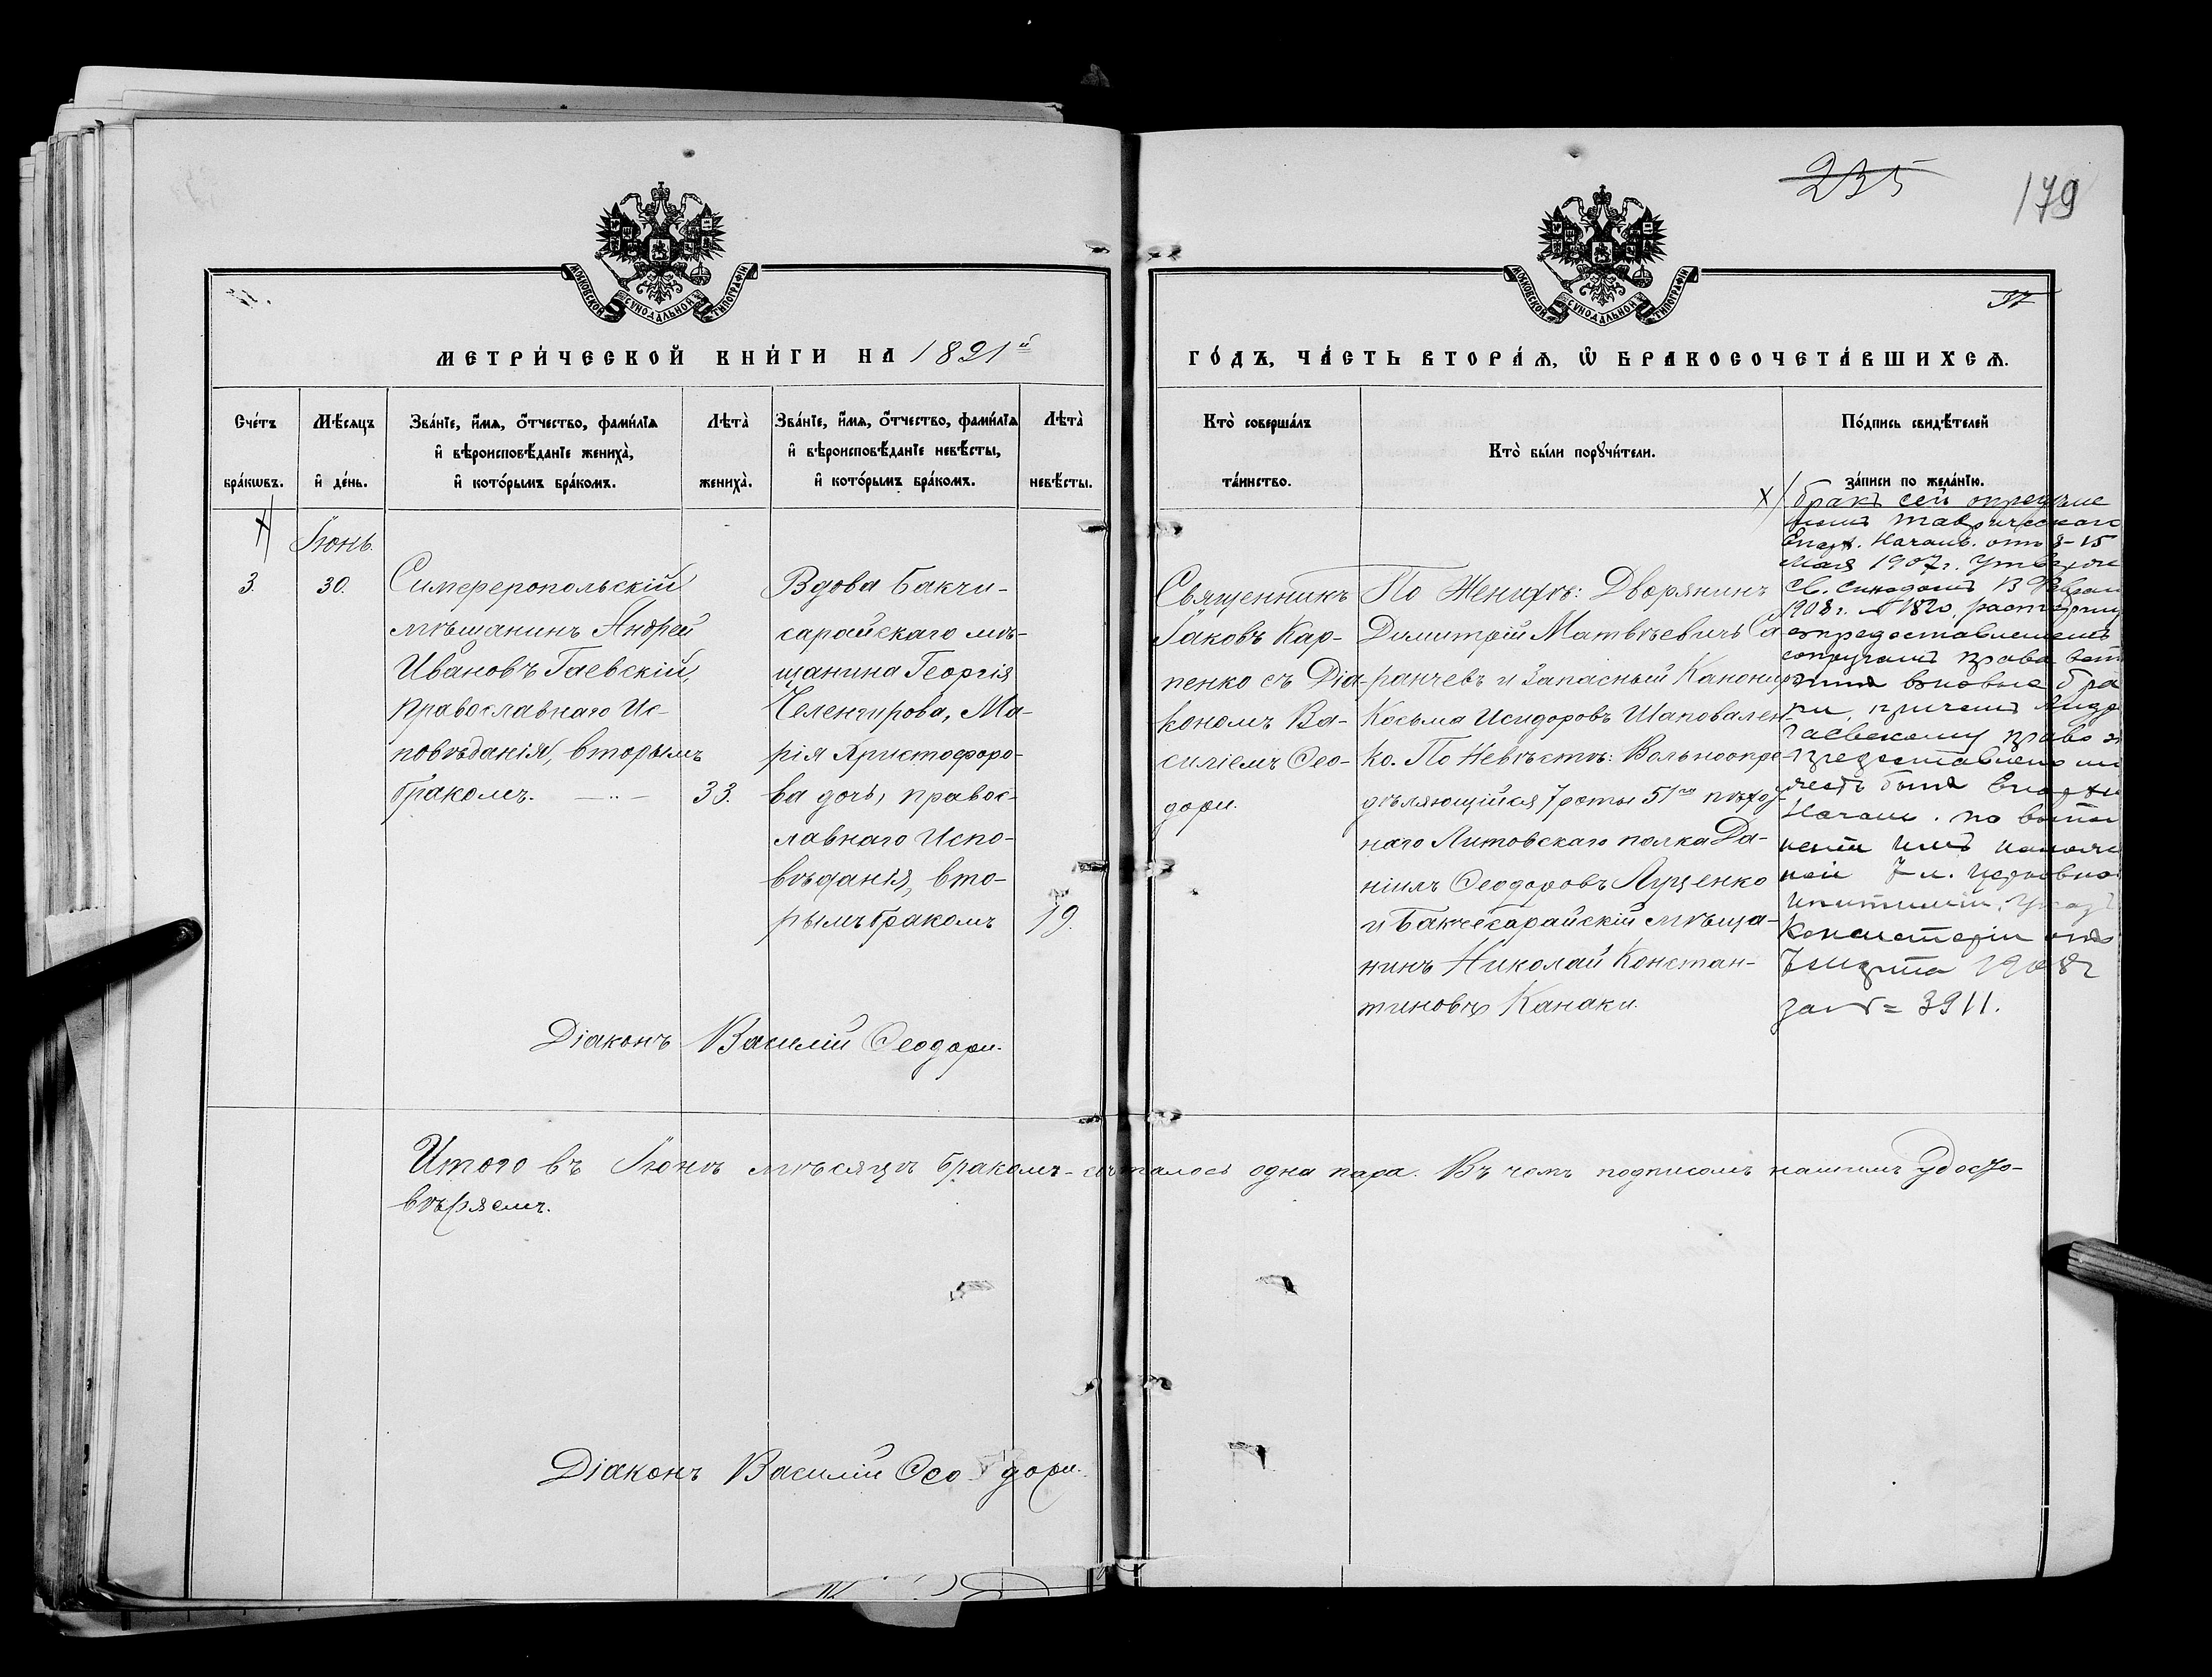 235
179
37
МОСКОВСКОЙ СѴНОДАЛЬНОЙ ТИПОГРАФІИ
МОСКОВСКОЙ СѴНОДАЛЬНОЙ ТИПОГРАФІИ
МЕТРИ́ЧЕСКОЙ КНИ́ГИ НА 1891й
ГО́ДЪ, ЧА́СТЬ ВТОРА́Ѧ, Ѡ БРАКОСОЧЕТА́ВШИХСѦ.
Сче́тъ
бра́кѡвъ.
Мѣ́сяцъ
и де́нь.
Зва́нїе, и́мя, о́тчество, фами́лїя
и вѣроисповѣ́данїе жениха̀,
и кото́рымъ бра́комъ.
Лѣта̀
жениха̀.
Зва́нїе, и́мя, о́тчество, фами́лїя
и вѣроисповѣ́данїе невѣ́сты,
и кото́рымъ бра́комъ.
Лѣта̀
невѣ́сты.
Кто̀ соверша́лъ
та́инство.
Кто̀ бы́ли порꙋчи́тели.
По́дпись свидѣ́телей
за́писи по жела́нїю.
Іюнь.
3.
30.
Симферопольскій
мѣщанинъ Андрей
Ивановъ Гаевскій,
православнаго Ис-
повѣданія, вторымъ
бракомъ.
33.
Вдова Бакчи-
сарайскаго мѣ-
щанина Георгія
Челенгирова, Ма-
рія Христофоро-
ва дочь, правос-
лавнаго Испо-
вѣданія, вто-
рымъ бракомъ
19.
Діаконъ Василій Ѳеодори.
Священникъ
Іаковъ Кар-
пенко съ Діа-
кономъ Ва-
силіемъ Ѳео-
дори.
По Женихѣ: Дворянинъ
Димитрій Матвѣевичъ Са-
ранчевъ и Запасный Канониръ
Косьма Исидоровъ Шаповален-
ко. По Невѣстѣ: Вольноопре-
дѣляющійся 7 роты 51го пѣхот-
наго Литовскаго полка Да-
ніилъ Ѳеодоровъ Луценко
и Бакчесарайскій мѣща-
нинъ Николай Констан-
тиновъ Канаки.
Х/ бракъ сей опредѣле
ніемъ Таврическаго
Епарх. Начальс. отъ 8-15
Мая 1907 г. утвержд
Св. Синодомъ 13 Феврал
1908 г. № 1820, расторгну
съ предоставленіемъ
супругамъ права всту
пить вновь въ бра
ки, причемъ Андр
Гаевскому право э
предоставлено
можетъ быть Епархі
Началь. по выпол
неніи имъ наложе
ной 7 л. церковной
епитиміи. Указъ
Консисторіи отъ
7 марта 1908 г
за № 3911.
Итого въ Іюнѣ мѣсяцѣ бракомъ сочеталось одна пара. Въ чемъ подписомъ нашимъ удосто-
вѣряемъ.
Діаконъ Василій Ѳеодори.